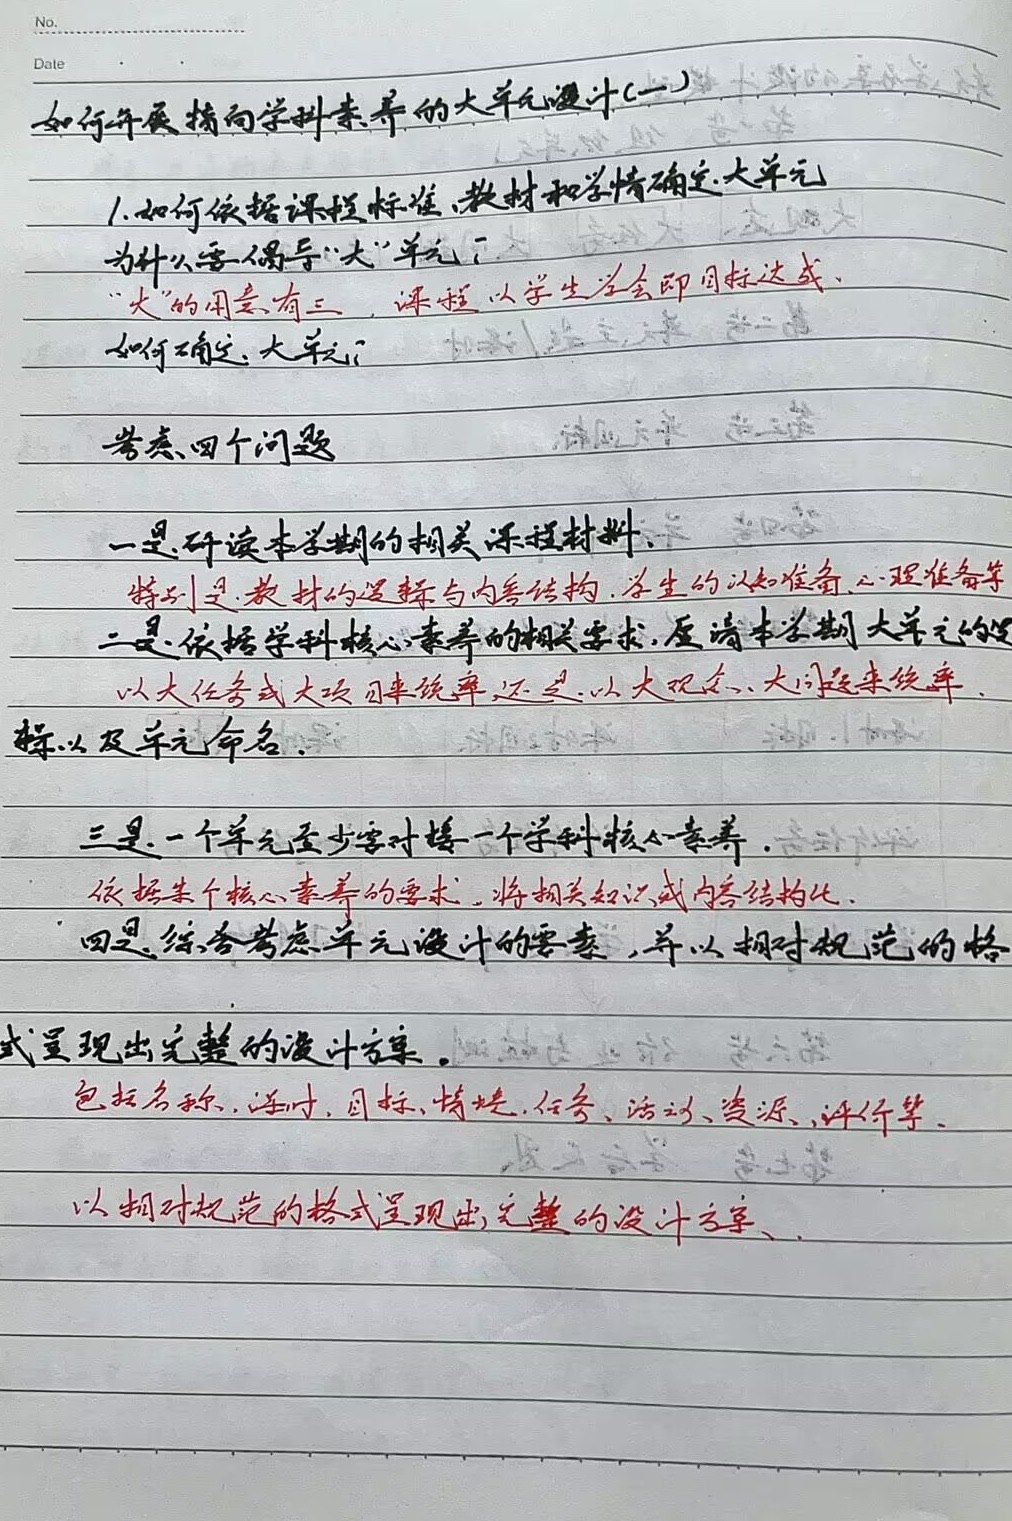 No.
Date
如何开展指向学科素养的大单元设计(一)
1.如何依据课程标准、教材和学情确定大单元
为什么要倡导“大”单元?
“大”的用意有三,课程以学生学会即目标达成.
如何确定大单元?
考虑四个问题
一是研读本学期的相关课程材料.
特别是教材的逻辑与内容结构.学生的认知准备心理准备等
二是依据学科核心素养的相关要求.厘清本学期大单元的逻
以大任务或大项目来统率还是以大观念、大问题来统率.
辑以及单元命名.
三是一个单元至少要对接一个学科核心素养.
依据某个核心素养的要求.将相关知识或内容结构化.
四是综合考虑单元设计的要素,并以相对规范的格
式呈现出完整的设计方案.
包括名称.课时.目标、情境.任务、活动、资源、评价等.
以相对规范的格式呈现出完整的设计方案、.